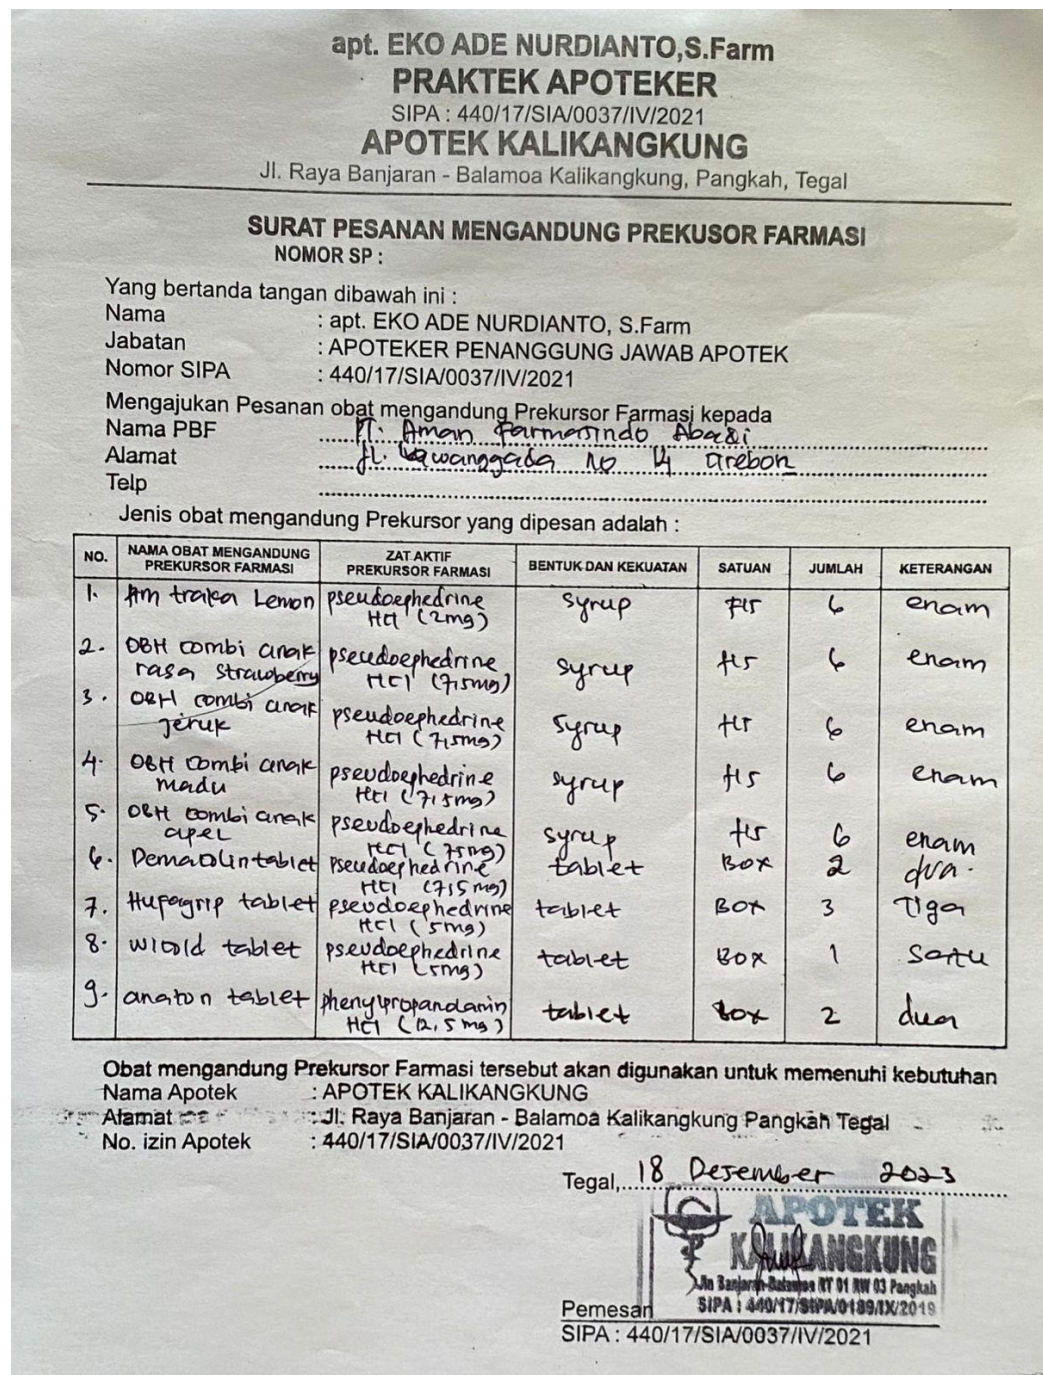 apt. EKO ADE NURDIANTO,S.Farm
PRAKTEK APOTEKER
SIPA : 440/17/SIA/0037/IV/2021
APOTEK KALIKANGKUNG
Jl. Raya Banjaran - Balamoa Kalikangkung, Pangkah, Tegal
SURAT PESANAN MENGANDUNG PREKUSOR FARMASI
NOMOR SP :
Yang bertanda tangan dibawah ini :
Nama : apt. EKO ADE NURDIANTO, S.Farm
Jabatan : APOTEKER PENANGGUNG JAWAB APOTEK
Nomor SIPA : 440/17/SIA/0037/IV/2021
Mengajukan Pesanan obat mengandung Prekursor Farmasi kepada
Nama PBF PT. Aman Farmasindo Abadi
Alamat Jl. No 14 Cirebon
Telp
Jenis obat mengandung Prekursor yang dipesan adalah :
NO. NAMA OBAT MENGANDUNG PREKURSOR FARMASI ZAT AKTIF PREKURSOR FARMASI BENTUK DAN KEKUATAN SATUAN JUMLAH KETERANGAN
1. Lemon pseudoephedrine HCl (2mg) syrup fls 6 enam
2. OBH combi anak rasa strawberry pseudoephedrine HCl (7,5mg) syrup fls 6 enam
3. OBH combi anak jeruk pseudoephedrine HCl (7,5mg) syrup fls 6 enam
4. OBH combi anak madu pseudoephedrine HCl (7,5mg) syrup fls 6 enam
5. OBH combi anak apel pseudoephedrine HCl (75mg) syrup fls 6 enam
6. Demacolin tablet pseudoephedrine HCl (7,5 mg) tablet Box 2 dua.
7. Hufagrip tablet pseudoephedrine HCl (5mg) tablet Box 3 Tiga
8. tablet pseudoephedrine HCl (5mg) tablet Box 1 satu
9. anaton tablet phenylpropanolamin HCl (12,5 mg) tablet Box 2 dua
Obat mengandung Prekursor Farmasi tersebut akan digunakan untuk memenuhi kebutuhan
Nama Apotek : APOTEK KALIKANGKUNG
Alamat : Jl. Raya Banjaran - Balamoa Kalikangkung Pangkah Tegal
No. izin Apotek : 440/17/SIA/0037/IV/2021
Tegal, 18 Desember 2023
APOTEK
KALIKANGKUNG
Jln Banjaran-Balamoa RT 01 RW 03 Pangkah
Pemesan SIPA : 440/17/SIPA/0189/IX/2019
SIPA : 440/17/SIA/0037/IV/2021